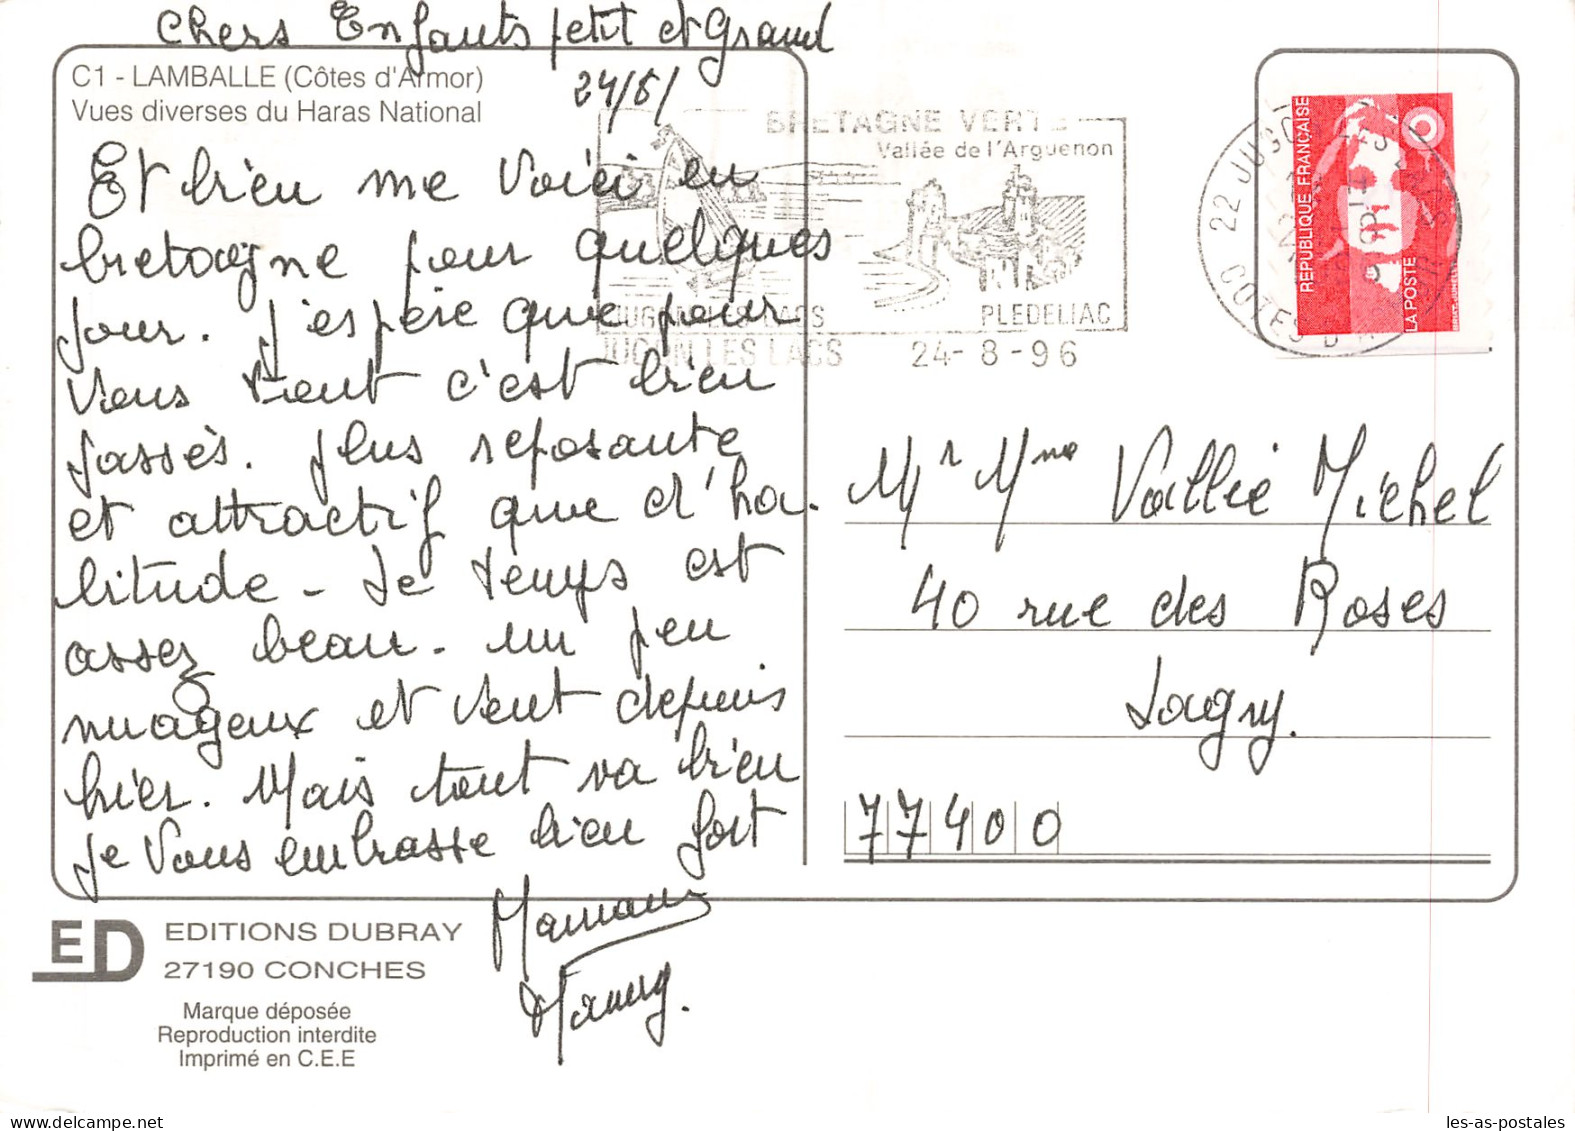 Chers Enfants petit et Grand
C1 - LAMBALLE (Côtes d'Armor)
Vues diverses du Haras National
24/8/
BRETAGNE VERTE
Vallée de l'Arguenon
JUGON LES LACS
PLEDELIAC
JUGON LES LACS 24-8-96
22 JUGON
COTES D'AR
RÉPUBLIQUE FRANÇAISE
LA POSTE
Et bien me voici en
bretagne pour quelques
jour. J'espère que pour
vous tout c'est bien
passés. plus reposante
et attractif que d'ha.
bitude - Le temps est
assez beau. un peu
nuageux et vent depuis
hier. Mais tout va bien
je vous embrasse bien fort
Maman
Mamy.
Mr Mme Vallié Michel
40 rue des Roses
Lagny.
77400
ED
EDITIONS DUBRAY
27190 CONCHES
Marque déposée
Reproduction interdite
Imprimé en C.E.E
les-as-postales